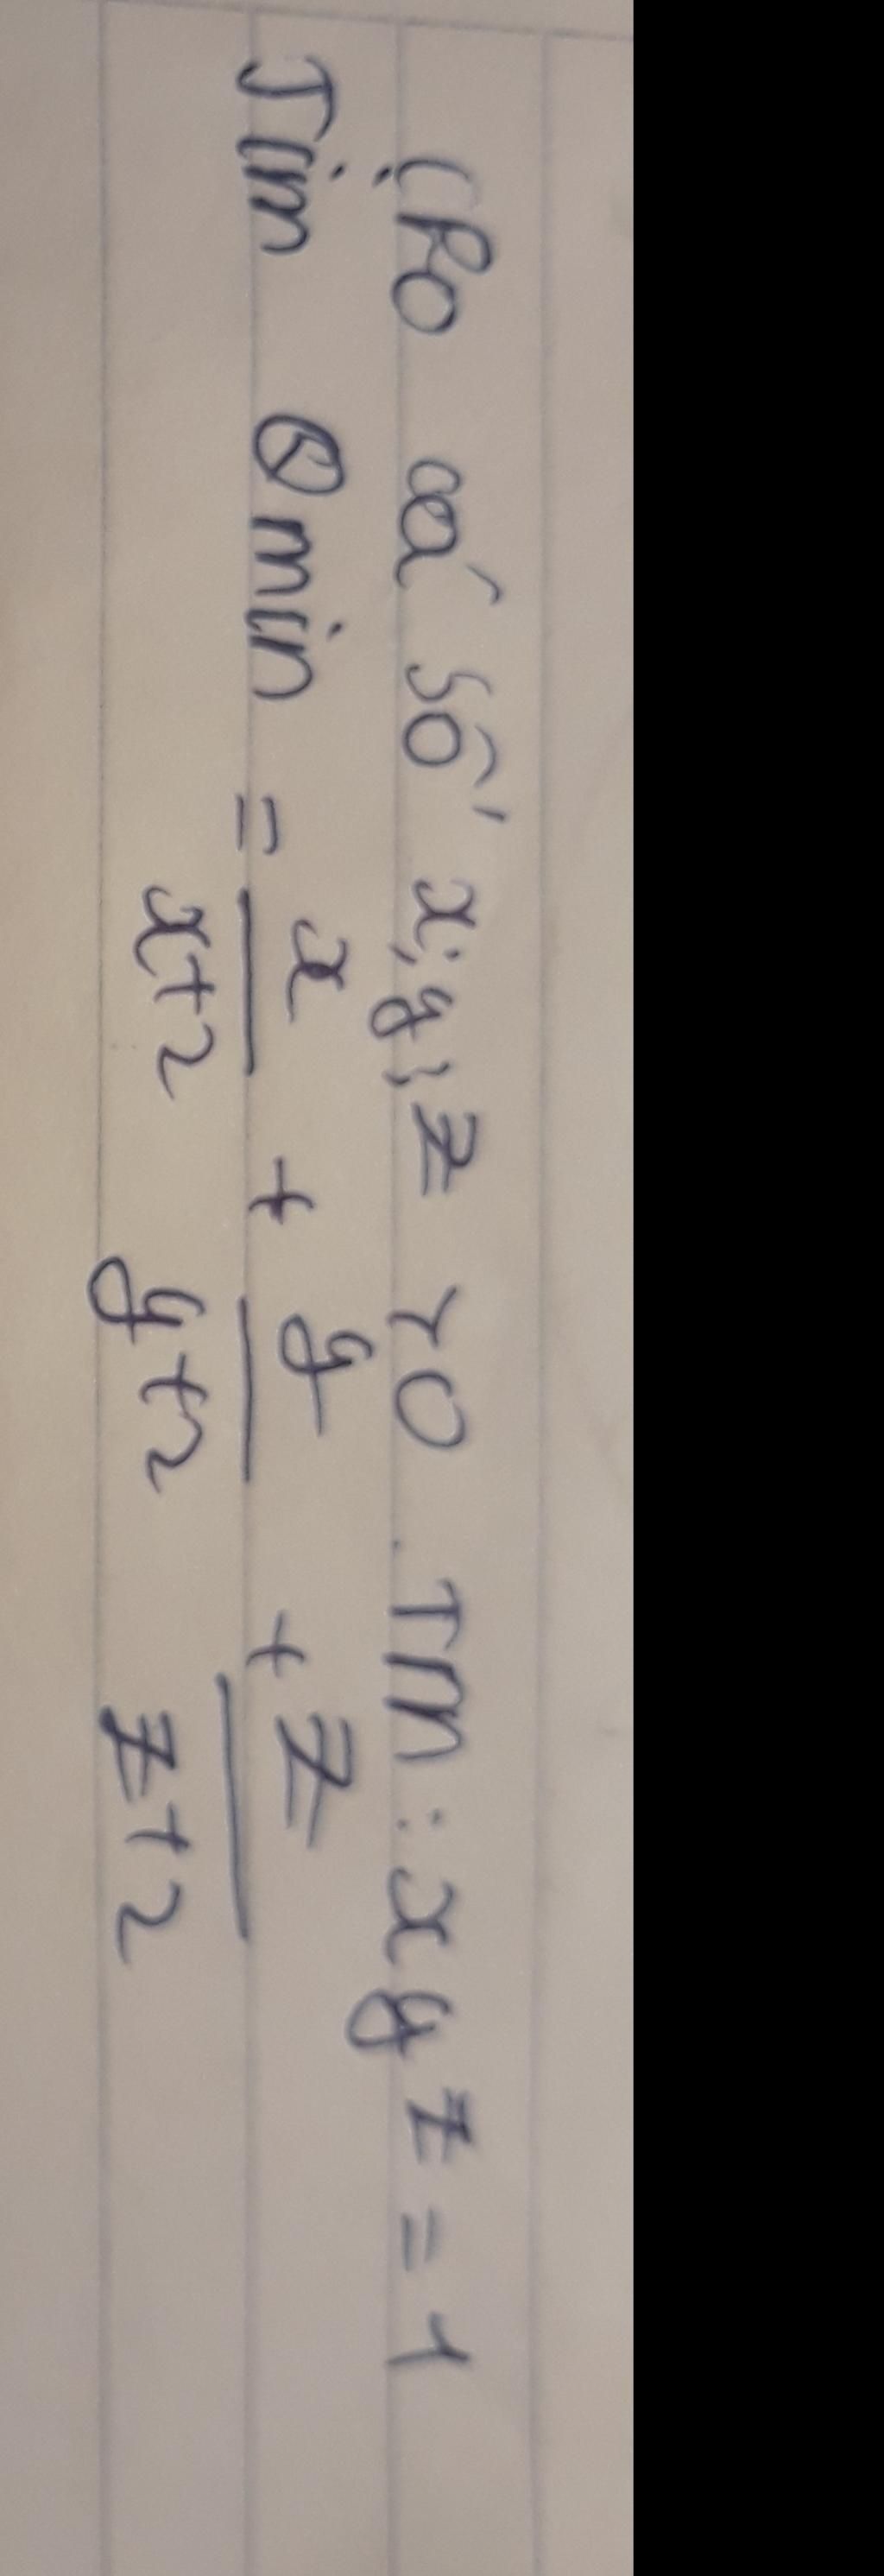 Cho các số x; y; z > 0 TM: xyz = 1
Tìm Qmin = x/(x+2) + y/(y+2) + z/(z+2)